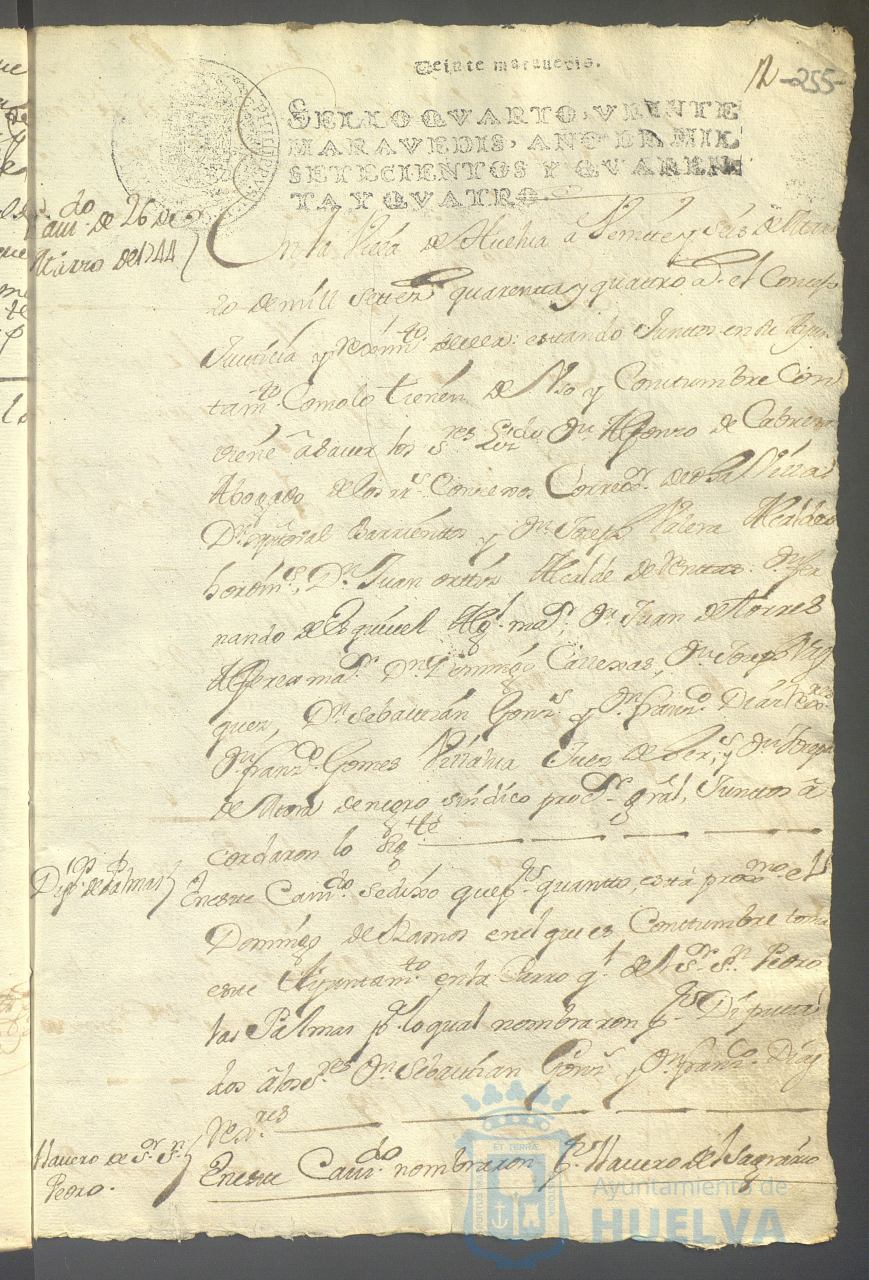 Veinte maravedis.
12 -255-
SELLO QVARTO, VEINTE
MARAVEDIS, AÑO DE MIL
SETECIENTOS Y QVAREN-
TA Y QVATRO.
PHILIPPVS
Cavdo. de 26 de
Marzo de 1744
En la Villa de Huelva â Veinte y seis de Mar
zo de mill Settez.s quarenta y quattro a.s el Consejo
Justicia y Reximto. de ella: estando Juntos en su Ayun
tamto. Como lo tienen de Uso y Constumbre Com
biene â saver los Sres. Lizdo. Dn. Alfonso de Cabrera
Abogado de los rs. Consexos Corregr. de dha Villa
Dn. Barrientos y Dn. Joseph Valera Alcaldes
hordins., Dn. Juan ortiz Alcalde de Dn. Fer
nando de Esquivel Algl. mar., Dn. Juan de Torres
Alferes mar. Dn. Domingo Dn. Joseph Vaz
quez, Dn. Sebastian Gonz.s y Dn. Franco. Diaz Rexres
Dn. Franco. Gomes Villalva Juez de y Dn. Joseph
de Mora de negro sindico pror. gral, Junctos â
cordaron lo Sigte.
Dips. pa. de Palmas
En este Cavdo. se dixo que pr. quantto, está proximo el
Domingo de Ramos en el que es Constumbre toma
este Ayuntamto. en la Parroql. del Sr. Sn. Pedro
las Palmas pa. lo qual nombraron pr. Diputta
dos â los Sres. Dn. Sebastian Gonz. y Dn. Franco. Diaz
Rexres.
Llavero de Sr. Sn.
Pedro.
En este Cavdo. nombraron pr. Llavero del Sagrario
Ayuntamiento de
HUELVA